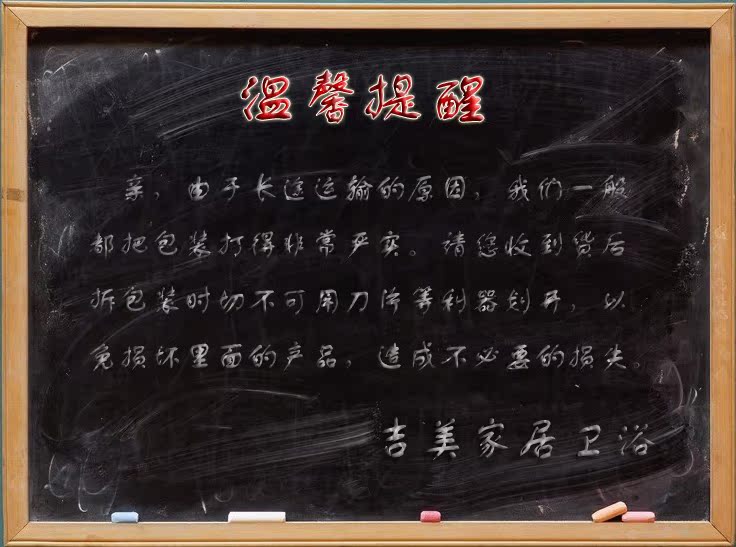 温馨提醒
亲，由于长途运输的原因，我们一般
都把包装打得非常严实。请您收到货后
拆包装时切不可用刀片等利器划开，以
免损坏里面的产品，造成不必要的损失。
吉美家居卫浴